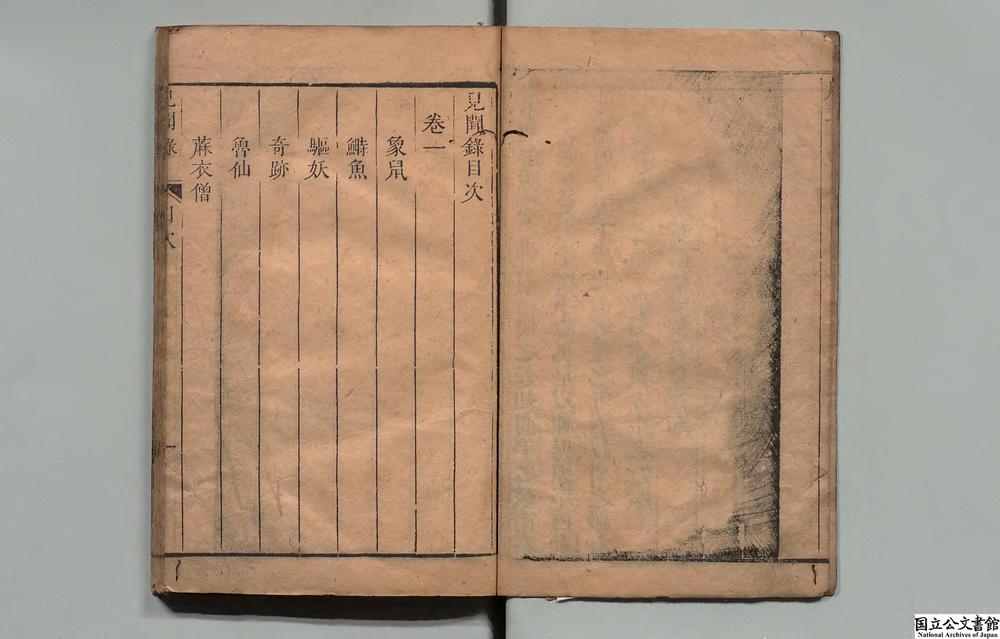 見聞錄目次
卷一
象鼠
鰣魚
驅妖
奇跡
魯仙
蔴衣僧
見聞錄
目次
一
国立公文書館
National Archives of Japan